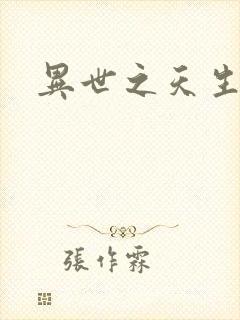 異世之天生
張作霖